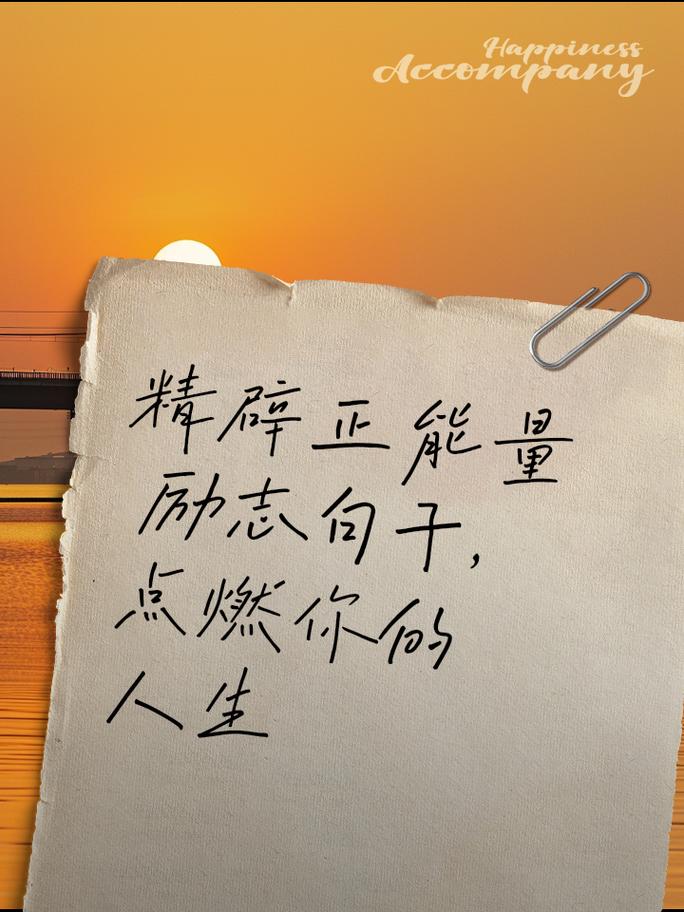 Happiness
Accompany
精辟正能量
励志句子,
点燃你的
人生